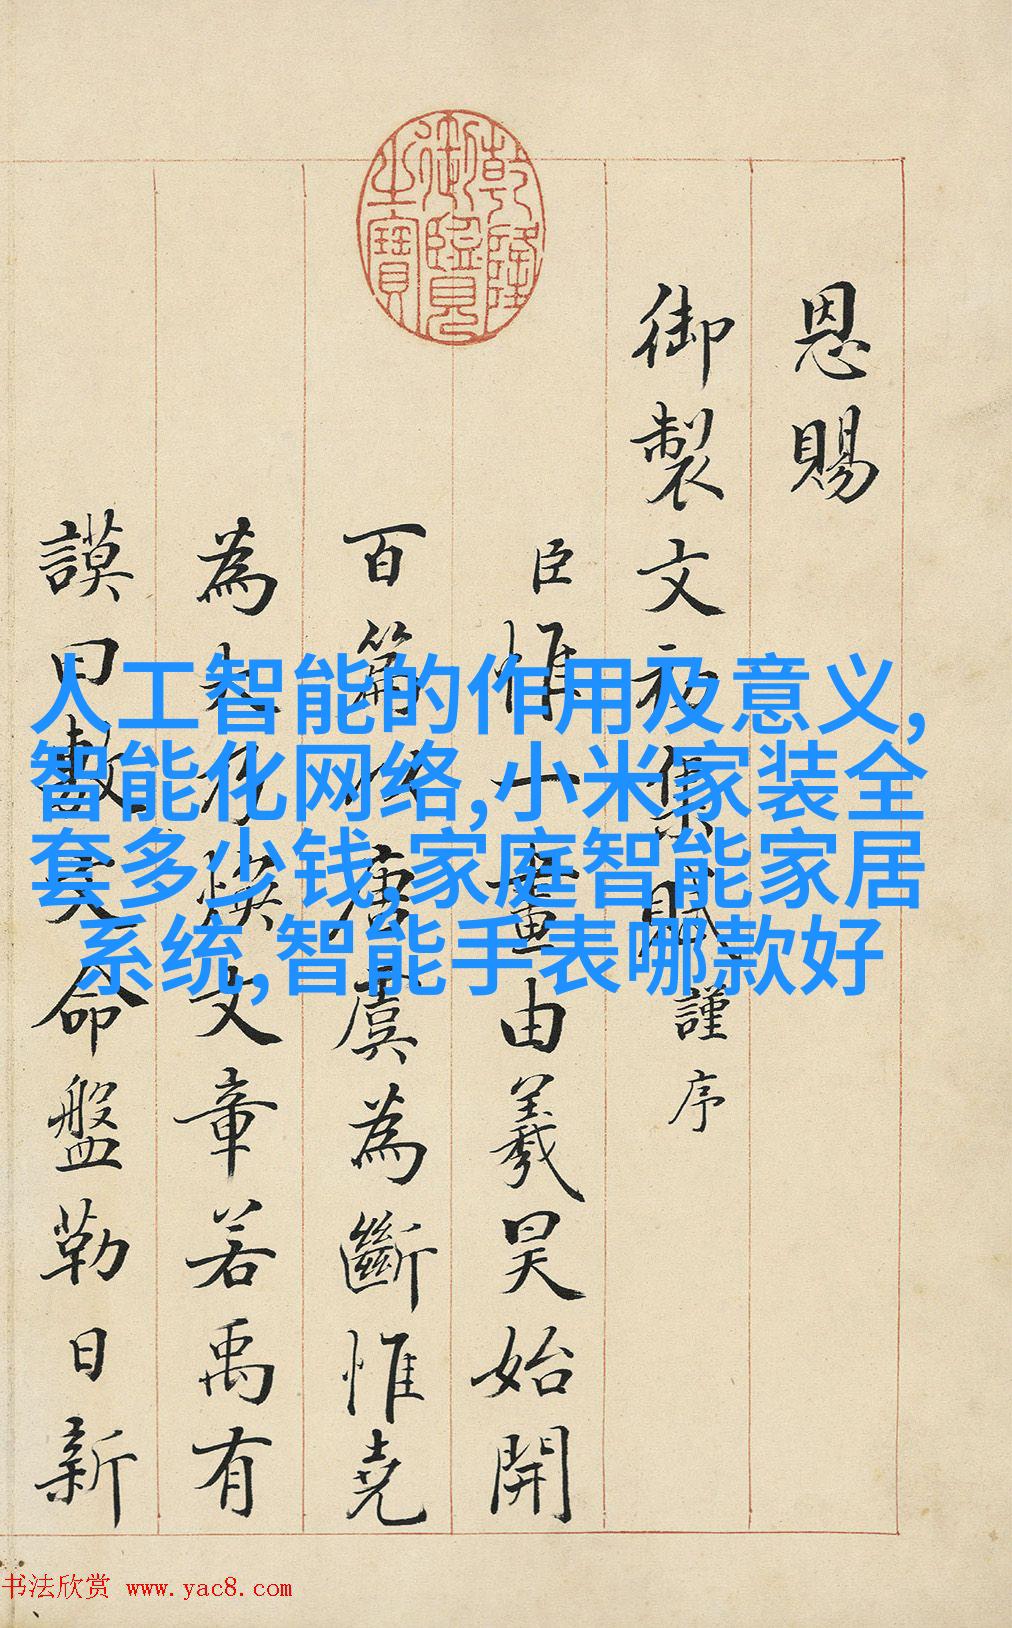 乾隆御覽之寶
恩賜
御製文初集賦謹序
臣惟一畫由羲昊始開
百篇以唐虞為斷惟堯
為大乃煥文章若禹有
謨曰敷文命盤勒日新
人工智能的作用及意义,
智能化网络,小米家装全
套多少钱,家庭智能家居
系统,智能手表哪款好
书法欣赏 www.yac8.com